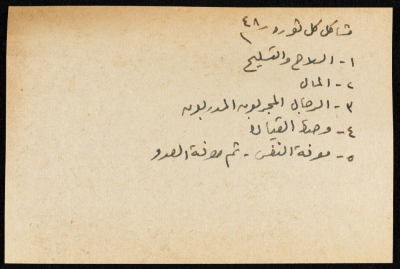 مشاكل كل ثورة ٤٨
١- السلاح والتسليح
٢- المال
٣- الرجال المجربون المدربون
٤- وحدة القيادة
٥- معرفة النفس - ثم معرفة العدو